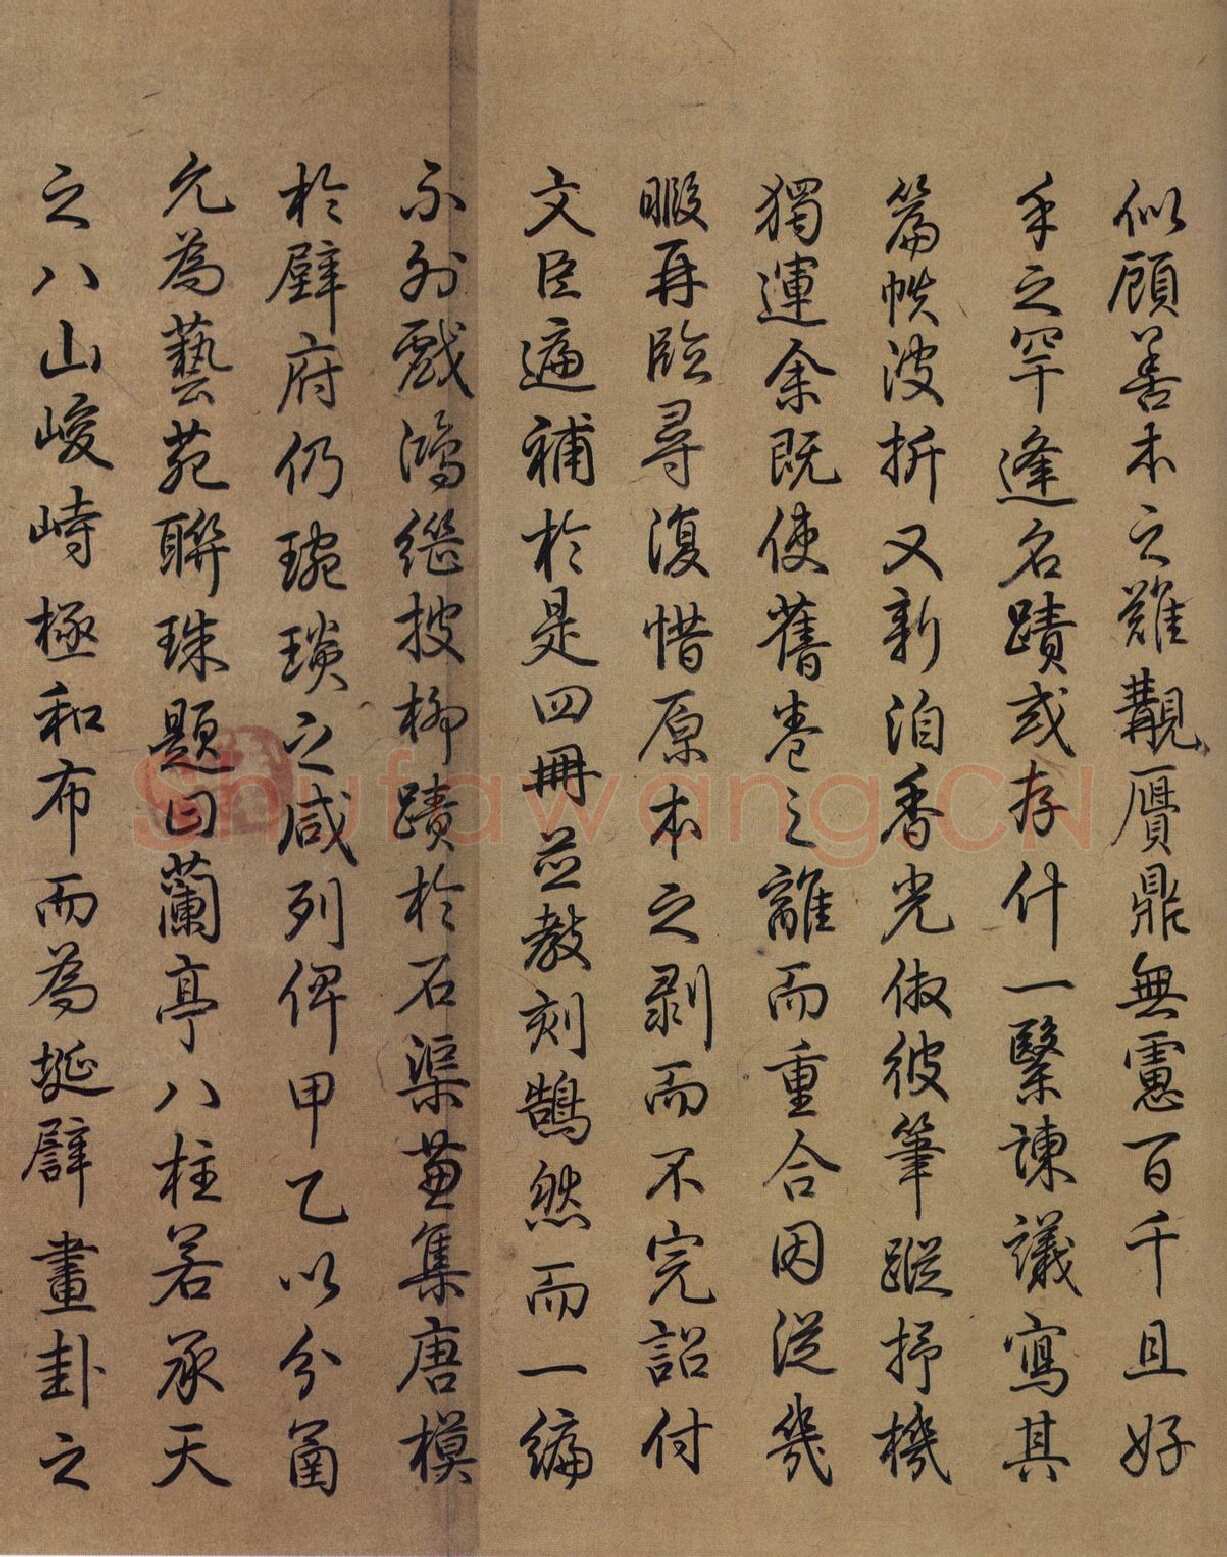 似顧善本之難覯贗鼎無慮百千且好
手之罕逢名蹟或存什一繄諫議寫其
篇帙波折又新洎香光俶彼筆蹤抒機
獨運余既使舊卷之離而重合因從幾
暇再臨尋復惜原本之剥而不完詔付
文臣遍補於是四冊並教刻鵠然而一編
不列戲鴻繼披柳蹟於石渠兼集唐模
於壁府仍琬琰之咸列俾甲乙以分函
允為藝苑聯珠題曰蘭亭八柱若承天
之八山峻峙極和布而為埏譬畫卦之
Shufawang.CN